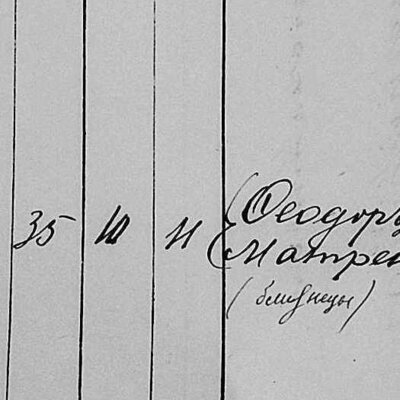 35 10 11 Ѳеодоръ
Матрен
(близнецы)